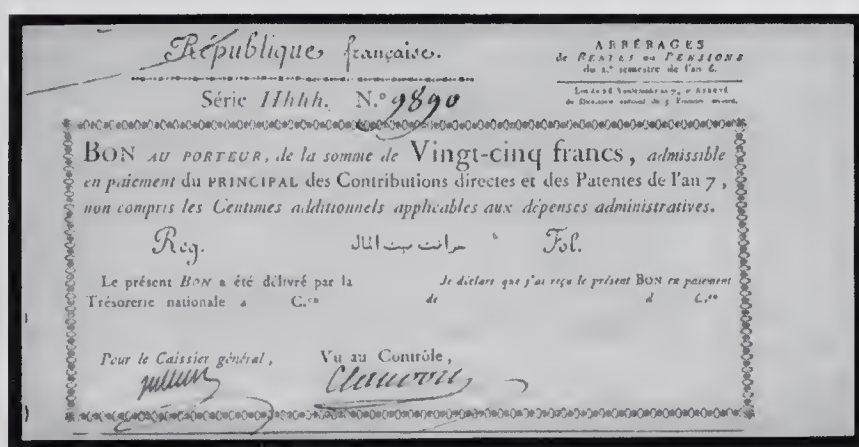 République française.
Série Hhhh. N.º 9890
ARRÉRAGES
de RENTES ou PENSIONS
du 2.e semestre de l'an 6.
Loi du 28 Vendémiaire an 7, et ARRÊTÉ
du Directoire exécutif du 3 Frimaire suivant.
BON AU PORTEUR, de la somme de Vingt-cinq francs, admissible
en paiement du PRINCIPAL des Contributions directes et des Patentes de l'an 7,
non compris les Centimes additionnels applicables aux dépenses administratives.
Reg. بيت المال Fol.
Le présent BON a été délivré par la
Trésorerie nationale a C.en
Je déclare que j'ai reçu le présent BON en paiement
de d C.en
Pour le Caissier général, Vu au Contrôle,